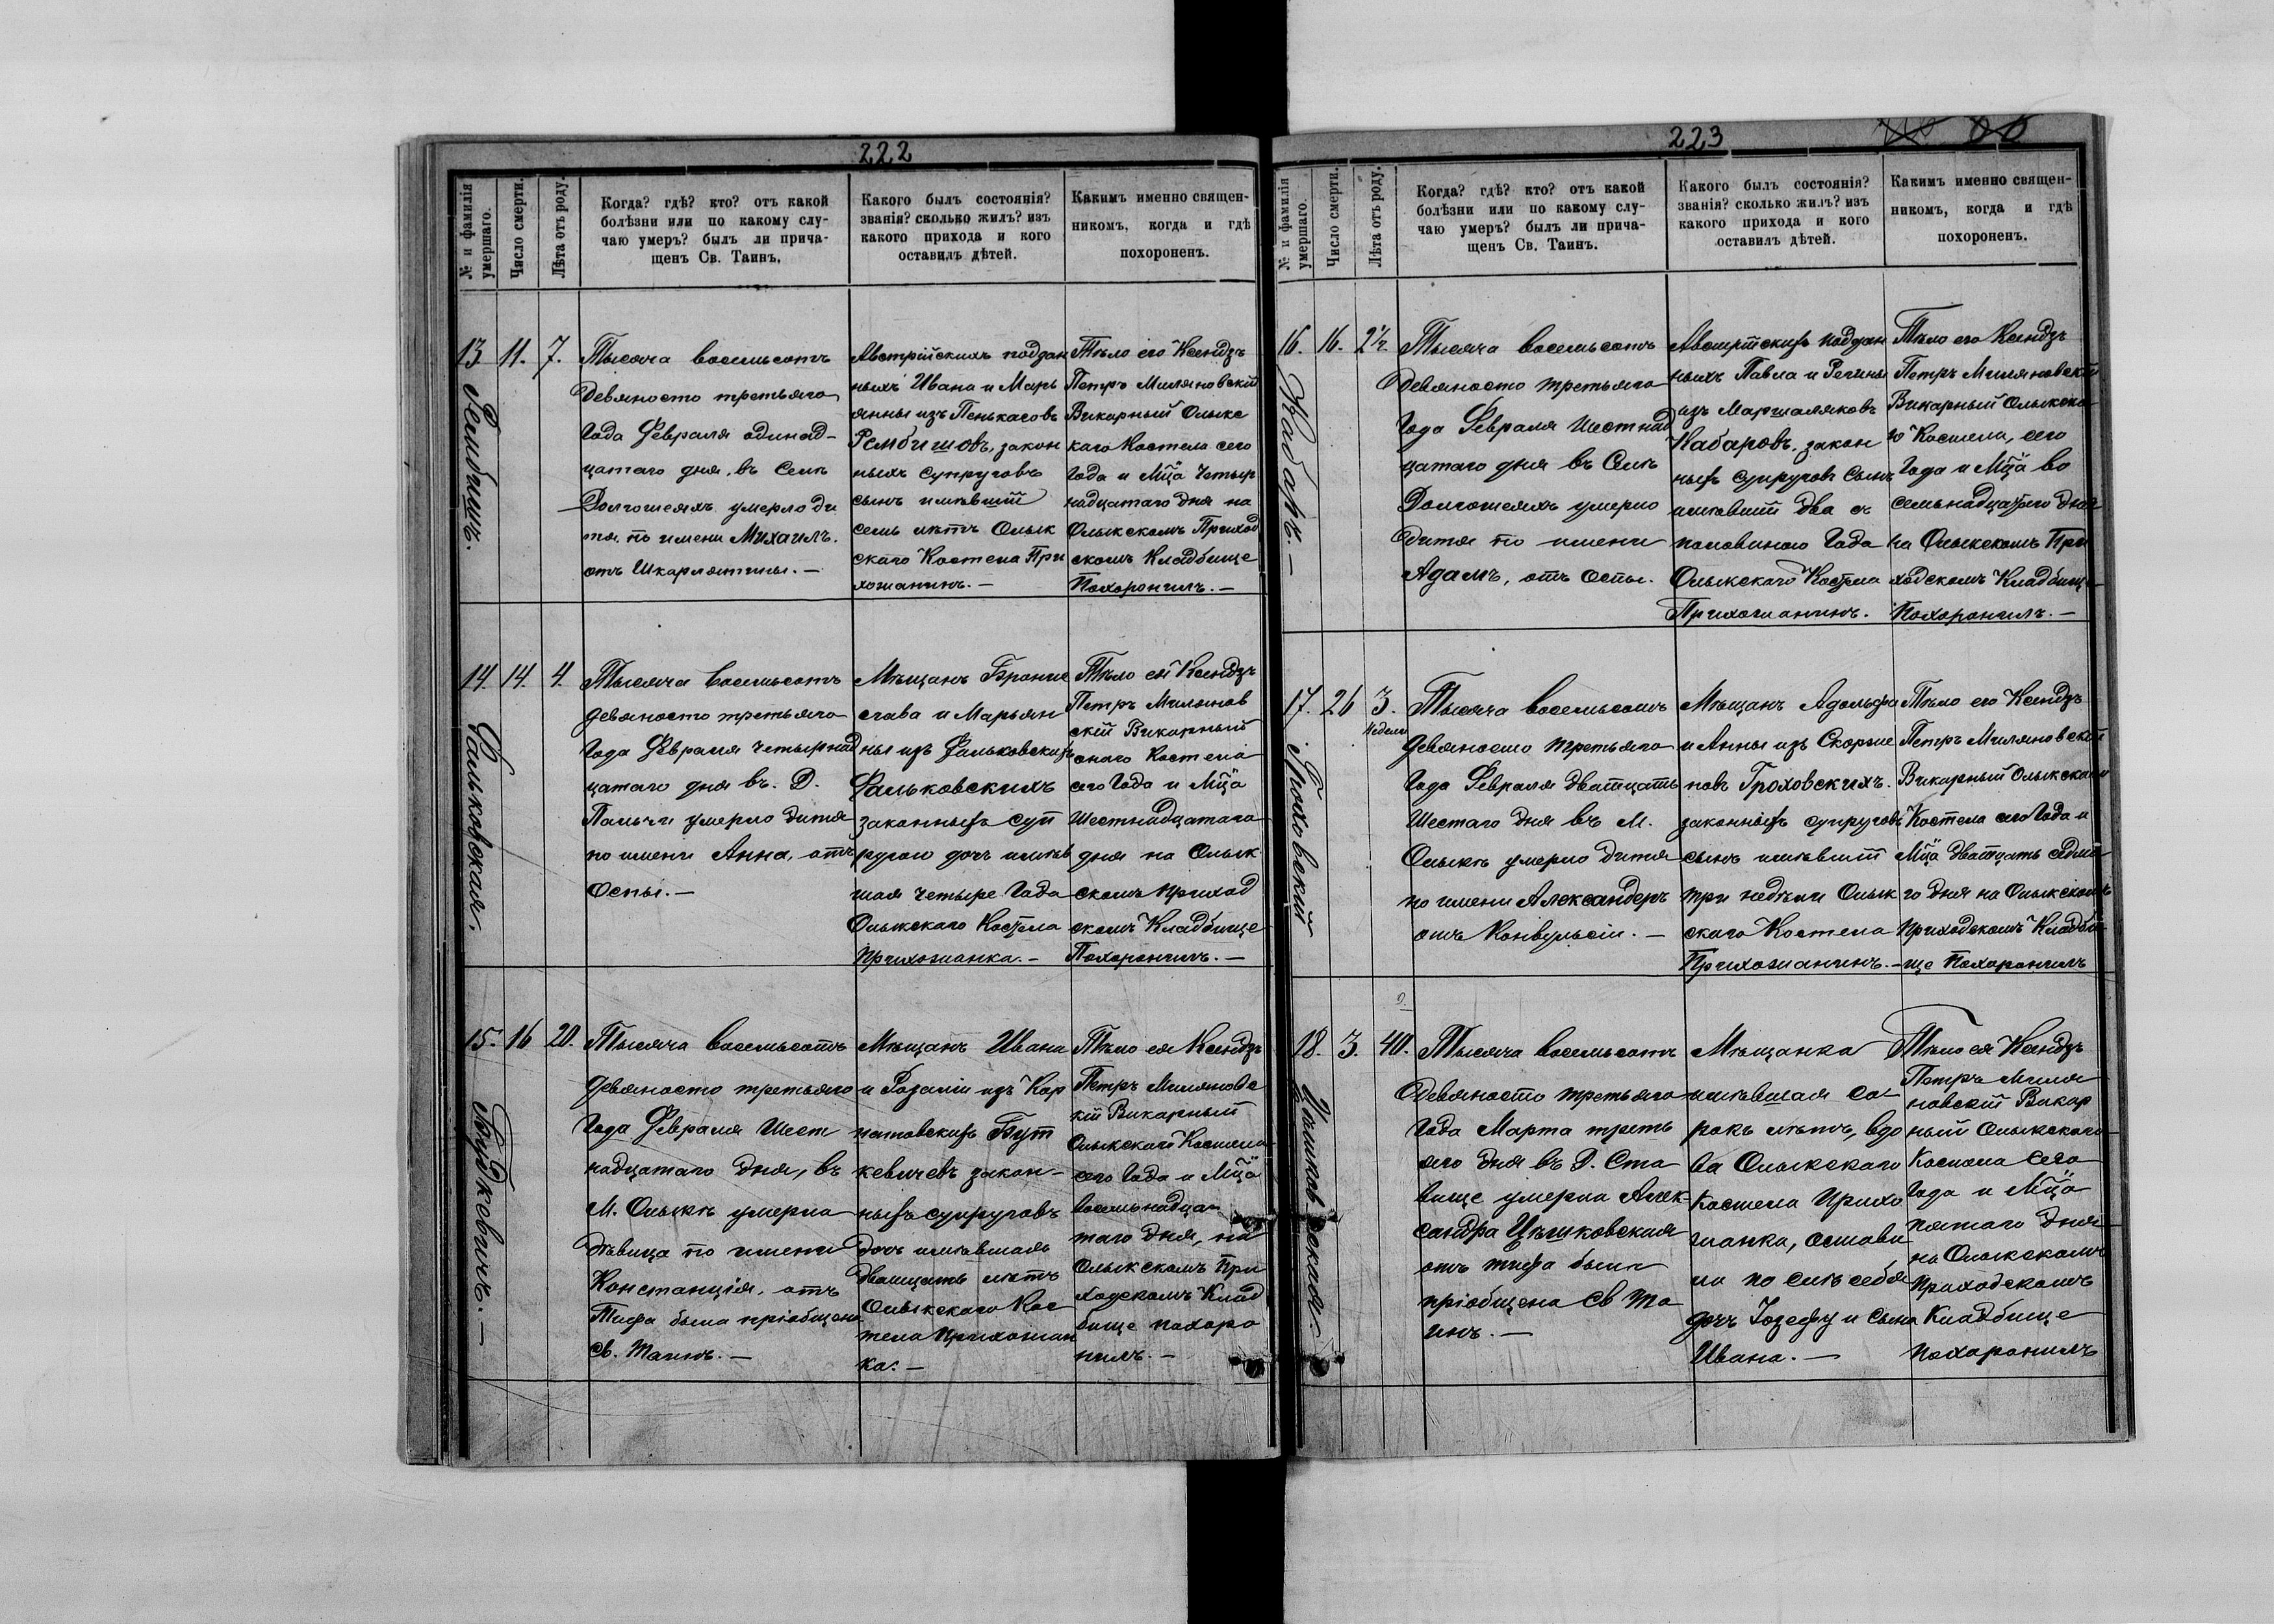 222
№ и фамилія умершаго.
Число смерти.
Лѣта отъ роду.
Когда? гдѣ? кто? отъ какой
болѣзни или по какому слу-
чаю умеръ? былъ ли прича-
щенъ Св. Таинъ.
Какого былъ состоянія?
званія? сколько жилъ? изъ
какого прихода и кого
оставилъ дѣтей.
Какимъ именно священ-
никомъ, когда и гдѣ
похороненъ.
13
Рембишъ.
11.
7.
Тысяча восемьсотъ
девяносто третьяго
Года Февраля одинад-
цатаго дня, въ Селѣ
Долгошеяхъ умерло ди
тя, по имени Михаилъ.
отъ Шкарлятины. —
Австрійскихъ поддан
ныхъ Ивана и Марь
янны изъ Пенькасовъ
Рембишовъ, закон
ныхъ супруговъ
сынъ имѣвшій
семь лѣтъ Олык
скаго Костела При
хожанинъ. —
Тѣло его Ксендзъ
Петръ Миляновскій
Викарный Олыкс
каго Костела сего
Года и Мца Четыр
надцатаго дня на
Олыкскомъ Приход
скомъ Кладбище
Похоронилъ. —
14.
Фальковская.
14.
4.
Тысяча восемьсотъ
девяносто третьяго
Года Февраля четырнад
цатаго дня въ. Д.
Пальчи умерло дитя
по имени Анна, отъ
Оспы. —
Мѣщанъ Бронис
слава и Марьян
ны изъ Фальковскихъ
Фальковскихъ
законныхъ суп
ругов дочь имѣв
шая четыре Года
Олыкскаго Костела
Прихожанка. —
Тѣло ей Ксендзъ
Петръ Милянов
скій Викарный
онаго Костела
сего Года и Мца
Шестнадцатаго
дня на Олык
скомъ приход
скомъ Кладбище
Похоронилъ. —
15.
Буткевичъ. —
16
20.
Тысяча восемьсотъ
девяносто третьяго
Года Февраля Шест
надцатаго дня, въ
М. Олыкѣ умерла
дѣвица по имени
Констанція, отъ
Тифа была пріобщена
Св. Таинъ. —
Мѣщанъ Ивана
и Розаліи изъ Кар
патовскихъ Бут
кевичевъ закон-
ныхъ супруговъ
дочь имѣвшая
двацать лѣтъ
Олыкскаго Кос
тела Прихожан
ка. —
Тѣло ея Ксендзъ
Петръ Миляновс
кій Викарный
Олыкскаго Костела
сего Года и Мца
восемьнадца
таго дня, на
Олыкскомъ При
ходскомъ Клад
бище похоро
нилъ. —
223
№ и фамилія умершаго.
Число смерти.
Лѣта отъ роду.
Когда? гдѣ? кто? отъ какой
болѣзни или по какому слу-
чаю умеръ? былъ ли прича-
щенъ Св. Таинъ.
Какого былъ состоянія?
званія? сколько жилъ? изъ
какого прихода и кого
оставилъ дѣтей.
Какимъ именно священ-
никомъ, когда и гдѣ
похороненъ.
16.
Кабаръ. —
16.
2½.
Тысяча восемьсотъ
девяносто третьяго
Года Февраля Шестнад
цатаго дня въ Селѣ
Долгошеяхъ умерло
дитя по имени
Адамъ, отъ Оспы.
Австрійскихъ поддан
ныхъ Павла и Регины
изъ Маршаляковъ
Кабаровъ. закон
ныхъ супруговъ Сынъ
имѣвшій два съ
половиною Года
Олыкскаго Костела
Прихожанинъ.
Тѣло его Ксендзъ
Петръ Миляновскій
Викарный Олыкска
го Костела, сего
Года и Мца во
семьнадцатаго дня
на Олыкскомъ При
ходскомъ Кладбище
Похоронилъ. —
17.
Гроховскій
26
3.
Недели
Тысяча восемьсотъ
девяносто третьяго
Года Февраля двадцать
Шестаго дня въ М.
Олыкѣ умерло дитя
по имени Александеръ
отъ Конвульсіи. —
Мѣщанъ Адольфа
и Анны изъ Скоржи
новъ Гроховскихъ.
законныхъ супруговъ
сынъ имѣвшій
три недѣли Олык
скаго Костела
Прихожанинъ. —
Тѣло его Ксендзъ
Петръ Миляновскій
Викарный Олыкскаго
Костела сего Года и
Мца двадцать седма
го дня на Олыкскомъ
Приходскомъ Кладби
ще Похоронилъ
18.
Цѣшковская.
3.
40.
Тысяча восемьсотъ
девяносто третьяго
Года Марта треть
яго дня въ Д. Ста
вище умерла Алек-
сандра Цѣшковская
отъ тифа была
пріобщена Св Та
инъ. —
Мѣщанка
имѣвшая со-
рокъ лѣтъ, вдо
ва Олыкскаго
Костела Прихо
жанка, остави
ла по силѣ себя
дочь Іозефу и сына
Ивана. —
Тѣло ея Ксендзъ
Петръ Миля
новскій Викар
ный Олыкскаго
Костела Сего
Года и Мца
пятаго дня
на Олыкскомъ
Приходскомъ
Кладбище
похоронилъ